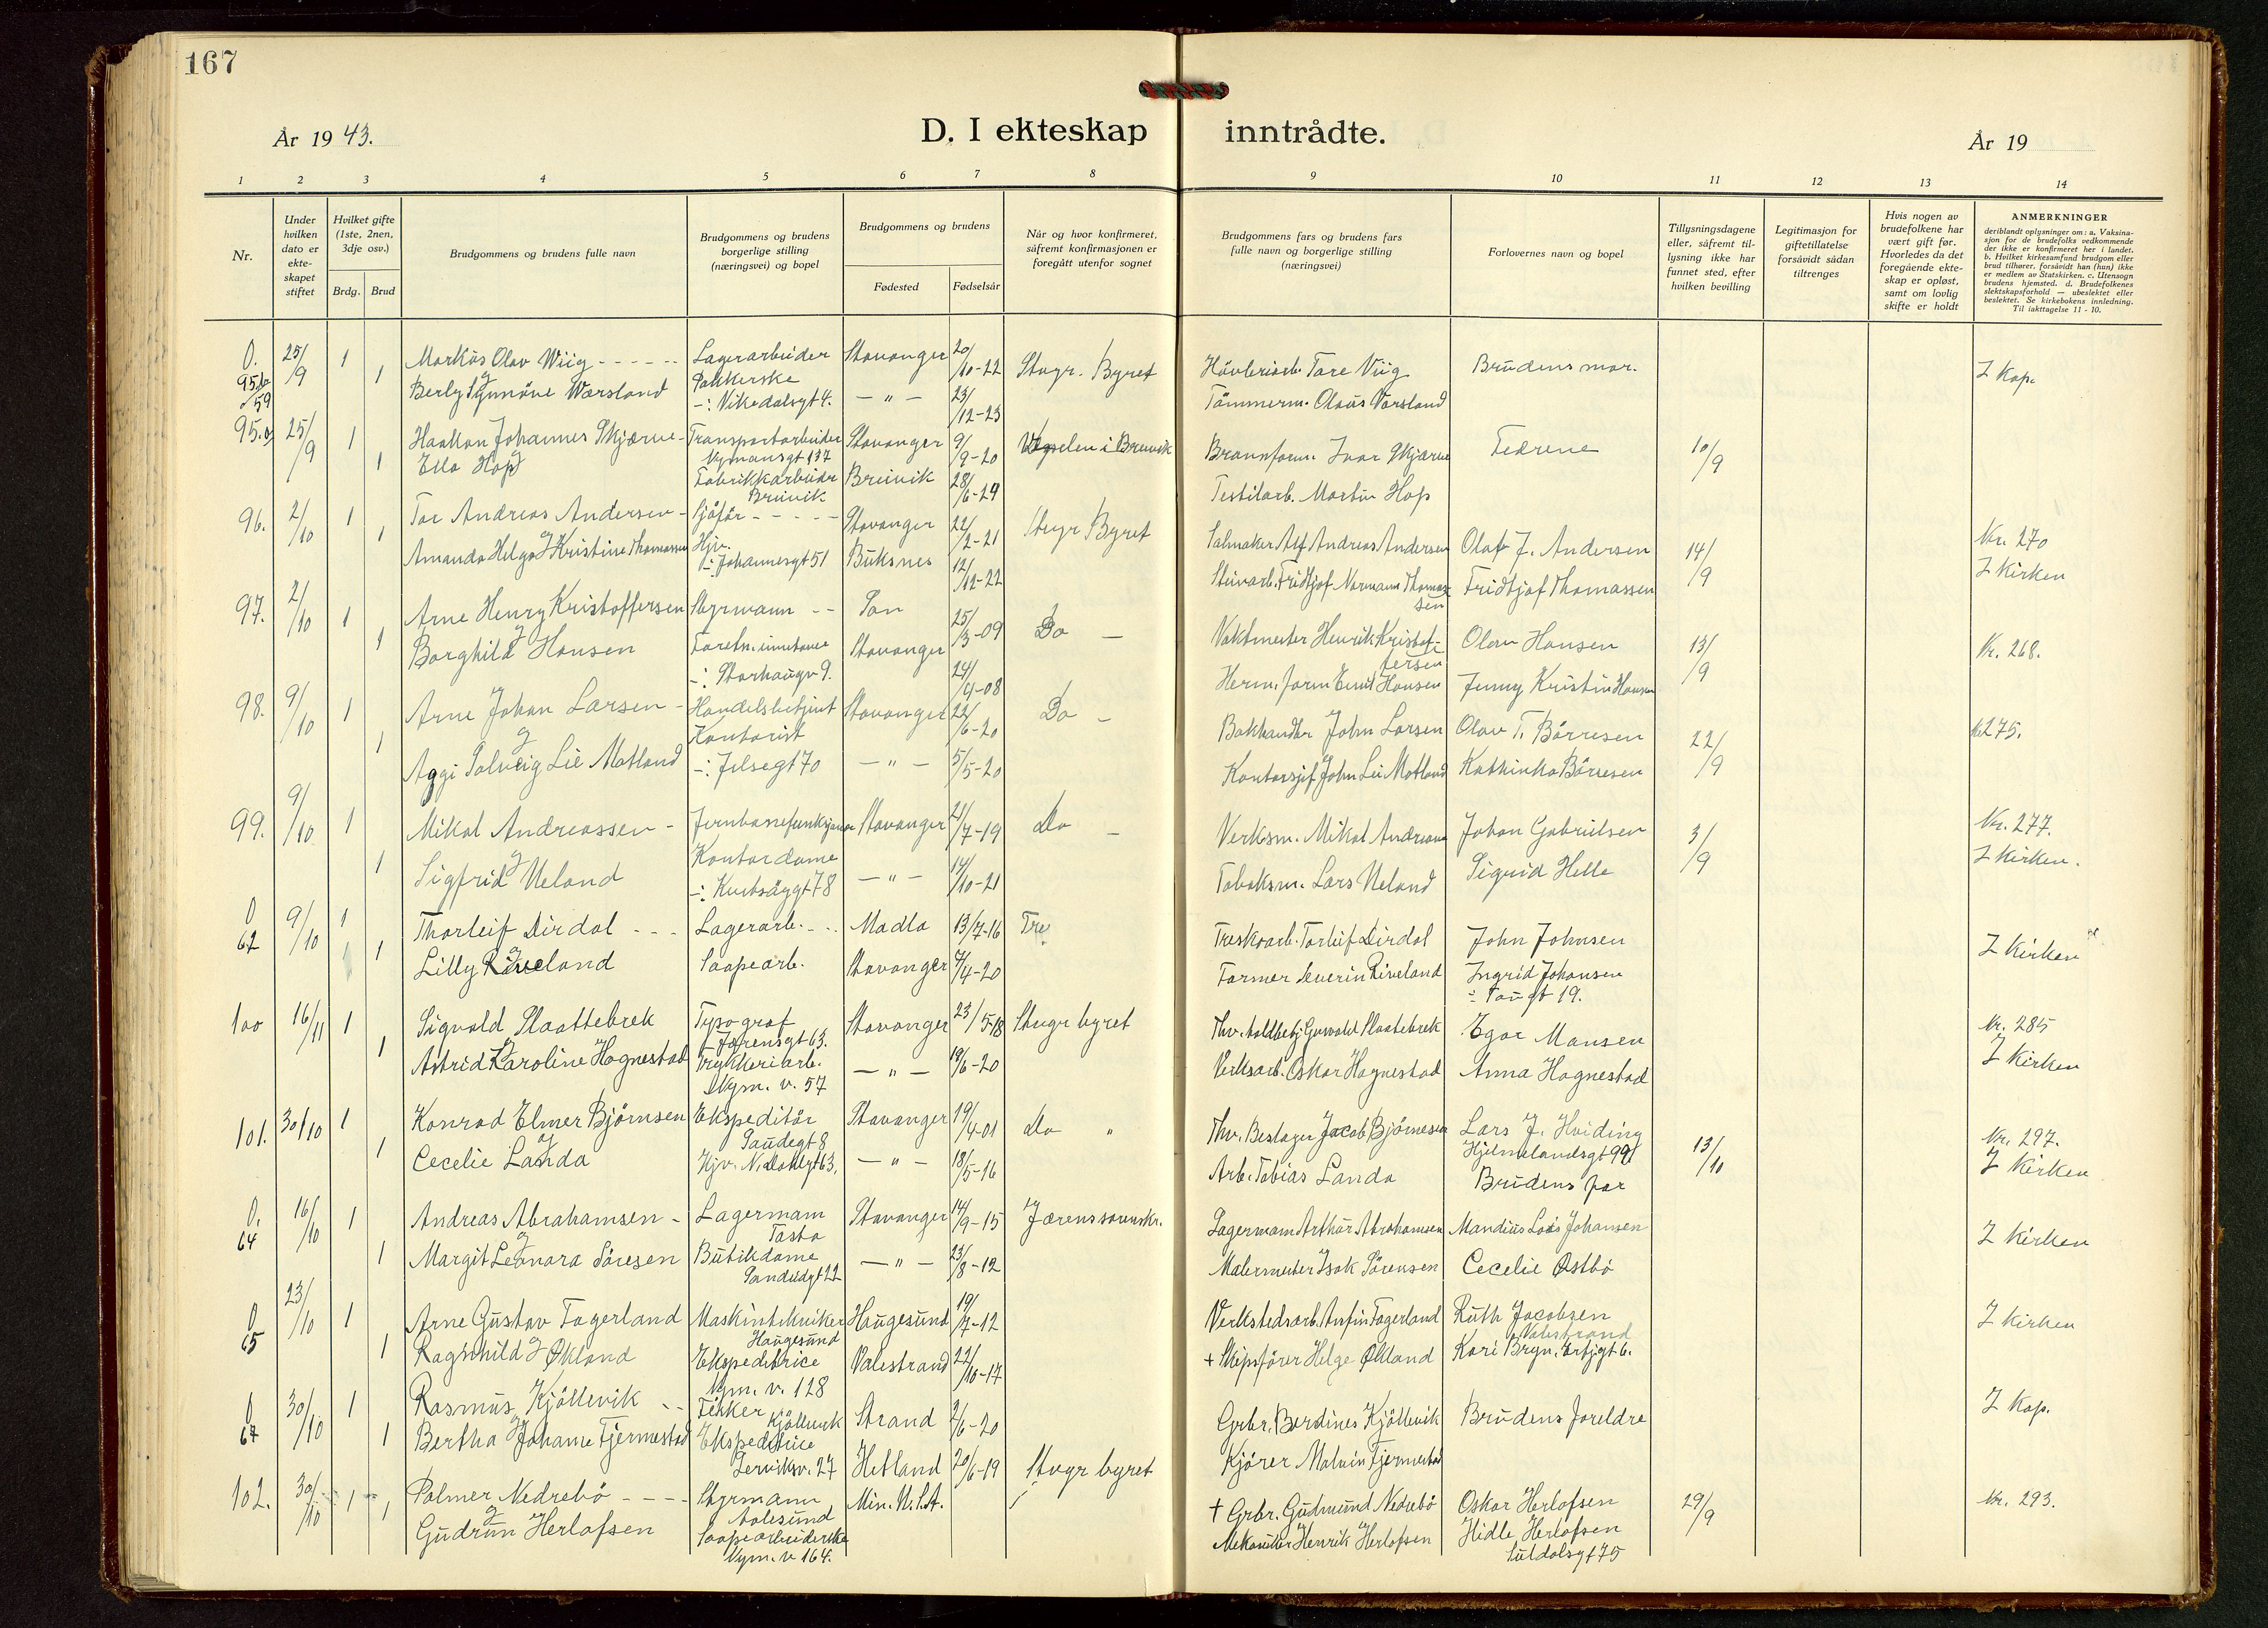 167
År 19 43.
D. I ekteskap inntrådte.
År 19
1 2 3 4 5 6 7 8 9 10 11 12 13 14
Nr.
Under hvilken dato er ekte- skapet stiftet
Hvilket gifte (1ste, 2nen, 3dje osv.)
Brdg. Brud
Brudgommens og brudens fulle navn
Brudgommens og brudens borgerlige stilling (næringsvei) og bopel
Brudgommens og brudens
Fødested Fødselsår
Når og hvor konfirmeret, såfremt konfirmasjonen er foregått utenfor sognet
Brudgommens fars og brudens fars fulle navn og borgerlige stilling (næringsvei)
Forlovernes navn og bopel
Tillysningsdagene eller, såfremt til- lysning ikke har funnet sted, efter hvilken bevilling
Legitimasjon for giftetillatelse forsåvidt sådan tiltrenges
Hvis nogen av brudefolkene har vært gift før. Hvorledes da det foregående ekte- skap er opløst, samt om lovlig skifte er holdt
ANMERKNINGER
deriblandt oplysninger om: a. Vaksina- sjon for de brudefolks vedkommende der ikke er konfirmeret her i landet. b. Hvilket kirkesamfund brudgom eller brud tilhører, forsåvidt han (hun) ikke er medlem av Statskirken. c. Utensogn brudens hjemsted. d. Brudefolkenes slektskapsforhold — ubeslektet eller beslektet. Se kirkebokens innledning. Til iakttagelse 11 - 10.
0. 25/9 1 Markus Olav Wiig - - - - - - Lagerarbeider Stavanger 20/10-22 Stvgr. Byret Høvleriarb. Tore Viig Brudens mor. I Kap.
95b 59 1 og Berly Synnøve Wærsland Pakkerske -:- Vikedalsgt 4. — " — 23/12-23 Tømmerm. Olaus Varsland
95.a 25/9 1 Haakon Johannes Skjærve - Transportarbeider Nymansgt 137 Stavanger 9/9-20 Brannform. Ivar Skjærve Fedrene 10/9
1 og Ella Hop Fabrikkarbeider Bruvik Bruvik 28/6-24 Testilarb. Martin Hop
96. 2/10 1 Tor Andreas Andersen - Sjøfør - - - - - Stavanger 22/2-21 Stvgr Byret Salmaker Alf Andreas Andersen Olaf J. Andersen 14/9 Nr. 270
1 og Amanda Helga Kristine Thomassen Hjv. -:- Johannesgt 51 Buksnes 12/12-22 Stuvarb. Fridtjof Normann Thomassen Fridtjof Thomassen I Kirken
97. 2/10 1 Arne Henry Kristoffersen Styrmann - - Son 25/3-09 Do — Vaktmester Henrik Kristoffersen Olav Hansen 13/9 Nr. 268.
1 og Borghild Hansen -:- Storhaugv 9. Stavanger 24/9-08 Herm. form Emil Hansen Jenny Kristin Hansen
98. 9/10 1 Arne Johan Larsen - Handelsbetjent Stavanger 22/6-20 Do - Bokhandler John Larsen Olav T. Børresen 22/9 Nr 275.
1 og Aggi Solveig Lie Motland Kontorist -:- Jelsegt 70 — " — 5/5-20 Kontorsjef John Lie Motland Kathinka Børresen
99. 9/10 1 Mikal Andreassen - Jernbanefunksjonær Stavanger 21/7-19 Do — Verksm. Mikal Andreassen Johan Gabrielsen 3/9 Nr. 277.
1 og Sigfrid Ueland Kontordame 78 — " — 14/10-21 Taboksm. Lars Ueland Sigrid Helle I Kirken.
0 62 9/10 1 Thorleif Dirdal - - - Lagerarb. - - Madla 13/7-16 Treskoarb. Torleif Dirdal John Johnsen I Kirken
1 og Lilly Riveland Saapearb. Stavanger 7/4-20 Farmer Severin Riveland Ingrid Johansen 19.
100 16/11 1 Sigvald Slaattebrek Typograf 63. Stavanger 23/5-18 Stvgr byret Slaatebrek Egar Mansen Nr. 285
1 og Astrid Karoline Hognestad Trykkeriarb. Nym. v. 57 — " — 19/6-20 Verksarb. Oskar Hognestad Anna Hognestad I Kirken
101. 30/10 1 Konrad Elmer Bjørnsen Ekspeditør Saudegt 8 Stavanger 19/4-01 Do " Thv. Beslager Jacob Bjørnesen Lars J. Hviding Hjelmelandsgt 99 13/10 Nr. 297.
1 og Cecelie Landa Hjv. N. Dalsgt 63, — " — 18/5-16 Arb. Tobias Landa Brudens far I Kirken
0. 64 16/10 1 Andreas Abrahamsen - Lagermann Tasta Stavanger 14/9-15 Jærens sorenskr. Lagermann Arthur Abrahamsen Mandius Lois Johansen I Kirken
1 og Margit Leonora Søresen Butikdame Sandeidgt 22 — " — 23/8-12 Malermester Isak Sørensen Cecelie Østbø
0 65 23/10 1 Arne Gustav Fagerland Maskintekniker Haugesund Haugesund 19/7-12 Verkstedsarb. Anfin Fagerland Ruth Jacobsen Valestrand I Kirken
1 og Ragnhild Økland Ekspeditrice Nym. v. 128 Valestrand 22/10-17 + Skipsfører Helge Økland Kari Bryn. Erfjgt 6.
0 67 30/10 1 Rasmus Kjøllevik - - Fisker Kjøllevik Strand 2/6-20 Grbr. Berdines Kjøllevik Brudens foreldre I Kap.
1 og Bertha Johanne Fjermestad Ekspeditrice Lerviksv. 27 Hetland 20/6-19 Kjører Malvin Fjermestad
102. 30/10 1 Palmer Nedrebø - - - - Styrmann Aalesund Min. U.S.A. Stvgr byret + Grbr. Gudmund Nedrebø Oskar Herlofsen 29/9 Nr. 293.
1 og Gudrun Herlofsen Saapearbeiderske Nym. v 164. Mekaniker Henrik Herlofsen Hidle Herlofsen Suldalsgt 75